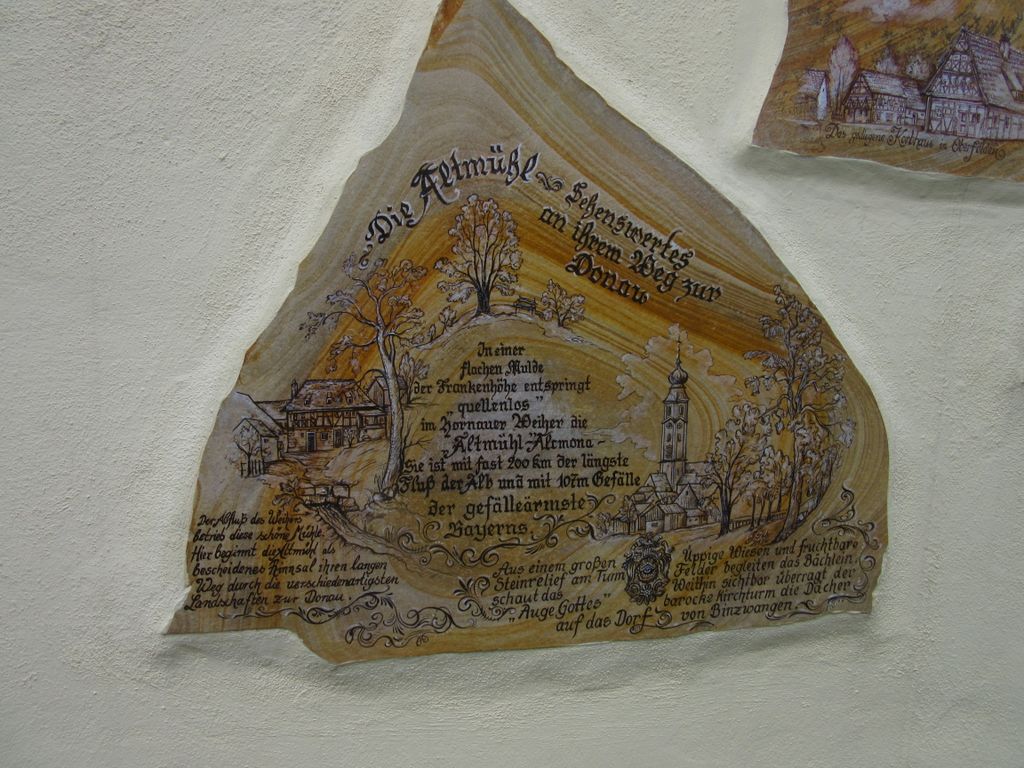 Die Altmühl
Sehenswertes
an ihrem Weg zur
Donau
In einer
flachen Mulde
der Frankenhöhe entspringt
"quellenlos"
im Hornauer Weiher die
"Altmühl-Alcmona-
Sie ist mit fast 200 km der längste
Fluß der Alb und mit 107m Gefälle
der gefälleärmste
Bayerns.
Der Abfluß des Weihers
betrieb diese schöne Mühle.
Hier beginnt die Altmühl als
bescheidenes Rinnsal ihren langen
Weg durch die verschiedenartigsten
Landschaften zur Donau.
Aus einem großen
Steinrelief am Turm
schaut das
"Auge Gottes"
auf das Dorf
Üppige Wiesen und fruchtbare
Felder begleiten das Bächlein.
Weithin sichtbar überragt der
barocke Kirchturm die Dächer
von Binzwangen.
Das gediegene in Oberfelden